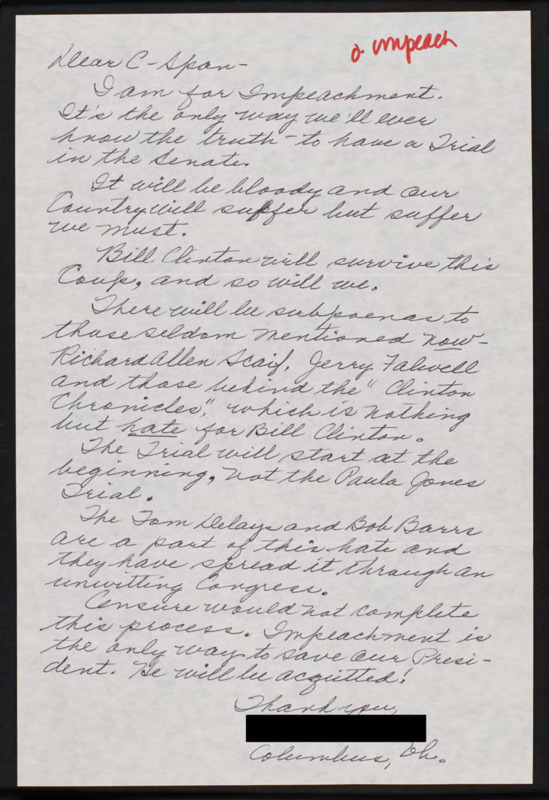 a. impeach
Dear C-Span-
I am for Impeachment.
It's the only way we'll ever
know the truth - to have a Trial
in the Senate.
It will be bloody and our
Country will suffer but suffer
we must.
Bill Clinton will survive this
Coup, and so will we.
There will be subpoenas to
those seldom mentioned now-
Richard Allen Scaif, Jerry Falwell
and those behind the "Clinton
Chronicles", which is nothing
but hate for Bill Clinton.
The Trial will start at the
beginning, not the Paula Jones
Trial.
The Tom Delays and Bob Barrs
are a part of this hate and
they have spread it through an
unwitting Congress.
Censure would not complete
this process. Impeachment is
the only way to save our Presi-
dent. He will be acquitted!
Thank you,
Columbus, Oh.